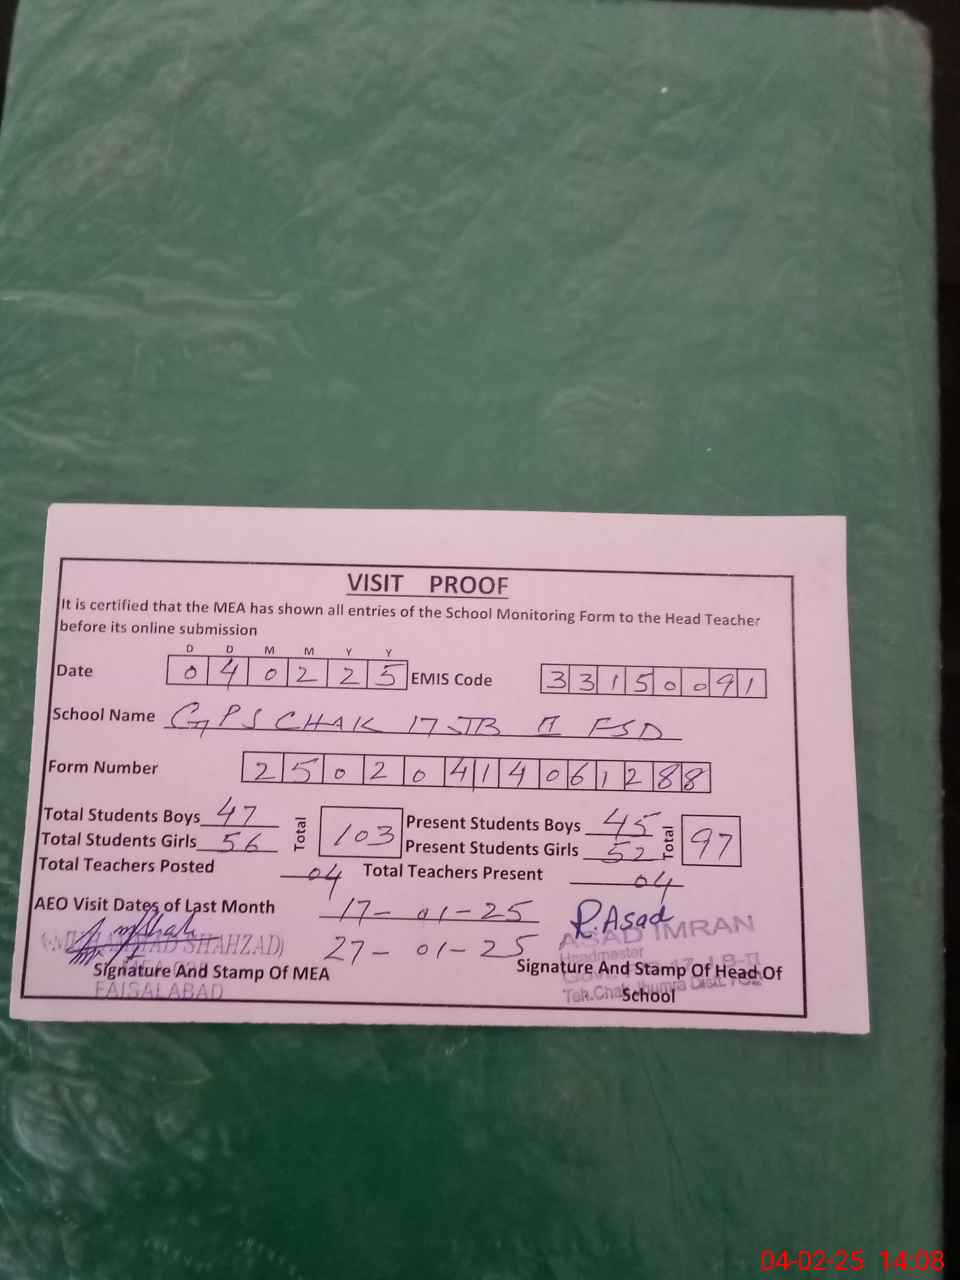 VISIT PROOF
It is certified that the MEA has shown all entries of the School Monitoring Form to the Head Teacher
before its online submission
D D M M Y Y
Date 0 4 0 2 2 5 EMIS Code 3 3 1 5 0 0 9 1
School Name GPS CHAK 17 JB II FSD
Form Number 2 5 0 2 0 4 1 4 0 6 1 2 8 8
Total Students Boys 47 Total 103 Present Students Boys 45 Total 97
Total Students Girls 56 Present Students Girls 52
Total Teachers Posted 04 Total Teachers Present 04
AEO Visit Dates of Last Month 17-01-25 R.Asad
SHAHZAD) 27-01-25 ASAD IMRAN
Headmaster
Signature And Stamp Of MEA Signature And Stamp Of Head Of
FAISALABAD Teh.Chak Jhumra School
04-02-25 14:08